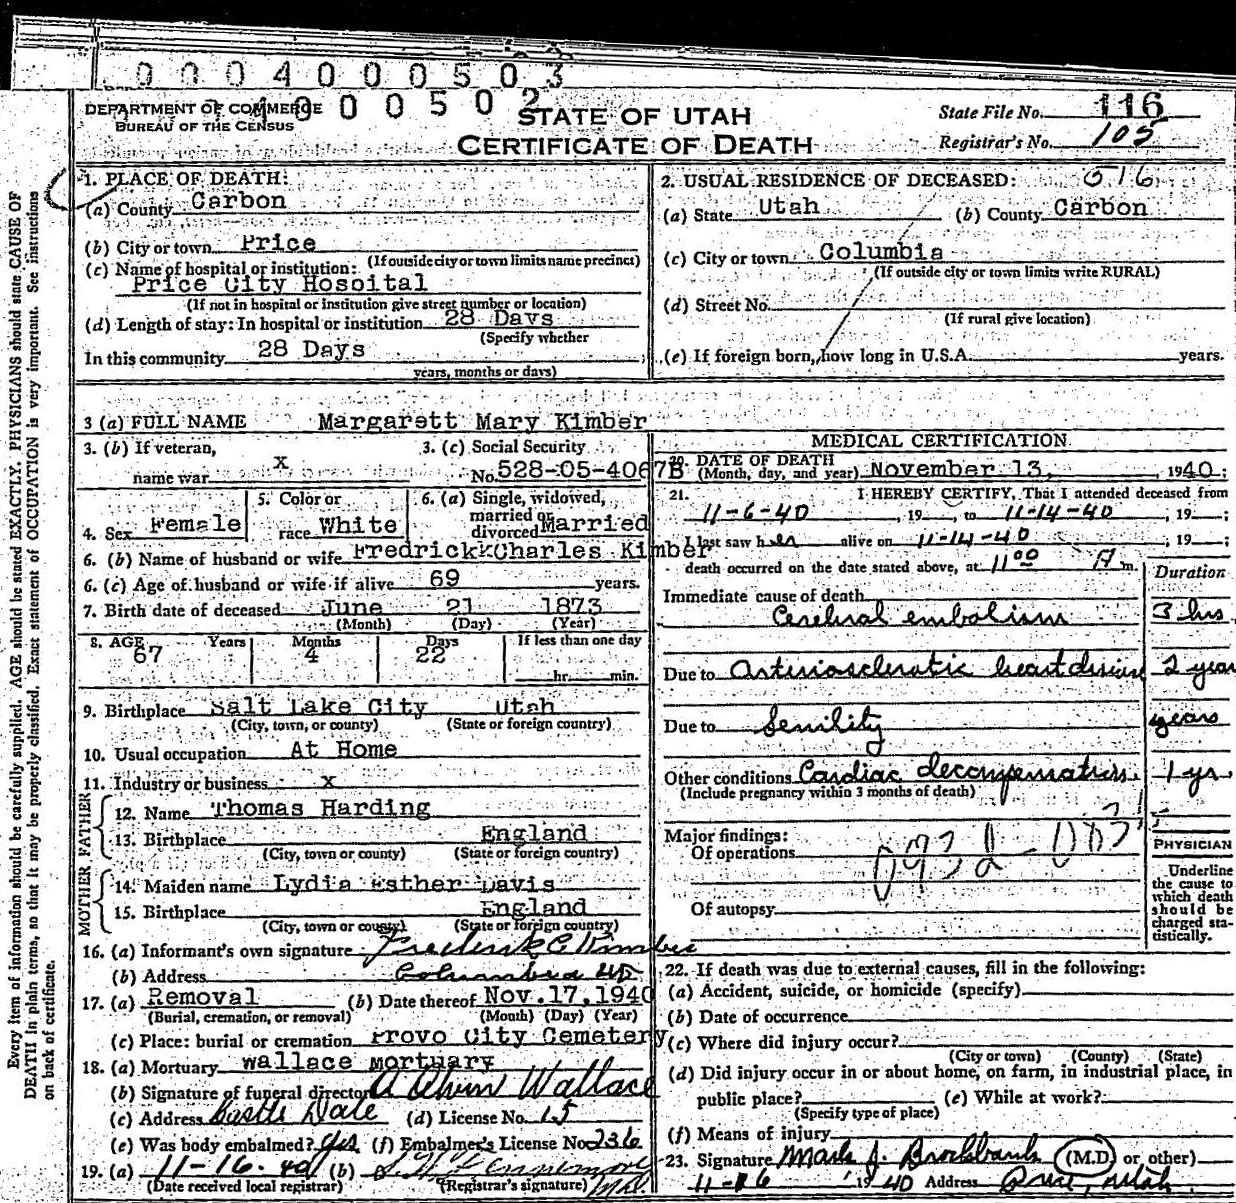 0 0 0 4 0 0 0 5 0 3
DEPARTMENT OF COMMERCE
BUREAU OF THE CENSUS
4 0 0 0 5 0 2
STATE OF UTAH
CERTIFICATE OF DEATH
State File No. 116
Registrar's No. 105
Every item of information should be carefully supplied. AGE should be stated EXACTLY. PHYSICIANS should state CAUSE OF
DEATH in plain terms, so that it may be properly classified. Exact statement of OCCUPATION is very important. See instructions
on back of certificate.
1. PLACE OF DEATH:
(a) County Carbon
(b) City or town Price
(If outside city or town limits name precinct)
(c) Name of hospital or institution:
Price City Hospital
(If not in hospital or institution give street number or location)
(d) Length of stay: In hospital or institution 28 Days
(Specify whether
In this community 28 Days
years, months or days)
2. USUAL RESIDENCE OF DECEASED: 616
(a) State Utah (b) County Carbon
(c) City or town Columbia
(If outside city or town limits write RURAL)
(d) Street No.
(If rural give location)
(e) If foreign born, how long in U.S.A. years.
3 (a) FULL NAME Margarett Mary Kimber
3. (b) If veteran, name war x
3. (c) Social Security No. 528-05-4067B
4. Sex Female
5. Color or race White
6. (a) Single, widowed, married or divorced Married
6. (b) Name of husband or wife Fredrick Charles Kimber
6. (c) Age of husband or wife if alive 69 years.
7. Birth date of deceased June 21 1873
(Month) (Day) (Year)
8. AGE Years Months Days If less than one day
67 4 22
hr. min.
9. Birthplace Salt Lake City Utah
(City, town, or county) (State or foreign country)
10. Usual occupation At Home
11. Industry or business x
FATHER
12. Name Thomas Harding
13. Birthplace England
(City, town or county) (State or foreign country)
MOTHER
14. Maiden name Lydia Esther Davis
15. Birthplace England
(City, town or county) (State or foreign country)
16. (a) Informant's own signature Frederik C. Kimber
(b) Address Columbia Ut
17. (a) Removal (b) Date thereof Nov. 17, 1940
(Burial, cremation, or removal) (Month) (Day) (Year)
(c) Place: burial or cremation Provo City Cemetery
18. (a) Mortuary Wallace Mortuary
(b) Signature of funeral director A Alvin Wallace
(c) Address Castle Dale (d) License No. 15
(e) Was body embalmed? yes (f) Embalmer's License No 236
19. (a) 11-16-40 (b)
(Date received local registrar) (Registrar's signature)
MEDICAL CERTIFICATION
20. DATE OF DEATH
(Month, day, and year) November 13, 1940;
21. I HEREBY CERTIFY, That I attended deceased from
11-6-40, 19 , to 11-14-40, 19 ;
I last saw her alive on 11-14-40, 19 ;
death occurred on the date stated above, at 11 00 A m.
Duration
Immediate cause of death
Cerebral embolism 3 hrs
Due to Arteriosclerotic heart disease 2 years
Due to Senility years
Other conditions Cardiac decompensation. 1 yr
(Include pregnancy within 3 months of death)
Major findings:
Of operations
Of autopsy
PHYSICIAN
Underline
the cause to
which death
should be
charged sta-
tistically.
22. If death was due to external causes, fill in the following:
(a) Accident, suicide, or homicide (specify)
(b) Date of occurrence
(c) Where did injury occur?
(City or town) (County) (State)
(d) Did injury occur in or about home, on farm, in industrial place, in
public place? (e) While at work?
(Specify type of place)
(f) Means of injury
23. Signature Mark J. Brockbank (M.D. or other)
11-16 1940 Address Price, Utah.